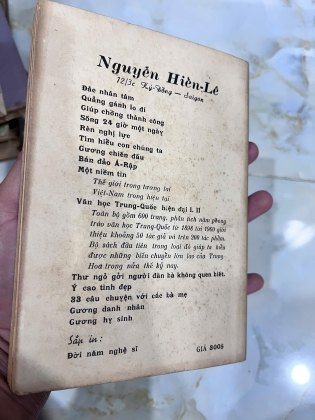 Nguyễn Hiến-Lê
12/3c Kỳ-Đồng — Saigon
Đắc nhân tâm
Quẳng gánh lo đi
Giúp chồng thành công
Sống 24 giờ một ngày
Rèn nghị lực
Tìm hiểu con chúng ta
Gương chiến đấu
Bán đảo Á-Rập
Một niềm tin
Thế giới trong tương lai
Việt-Nam trong hiện tại
Văn học Trung-Quốc hiện đại I. II
Toàn bộ gồm 600 trang, phân tích năm phong
trào văn học Trung-Quốc từ 1898 tới 1960 giới
thiệu khoảng 50 tác giả và trên 200 tác phẩm.
Bộ sách đầu tiên trong loại đó giúp ta hiểu
được những biến chuyển lớn lao của Trung-
Hoa trong nửa thế kỷ nay.
Thư ngỏ gởi người đàn bà không quen biết.
Ý cao tình đẹp
33 câu chuyện với các bà mẹ
Gương danh nhân
Gương hy sinh
Sắp in:
Đời năm nghệ sĩ
GIÁ 800$